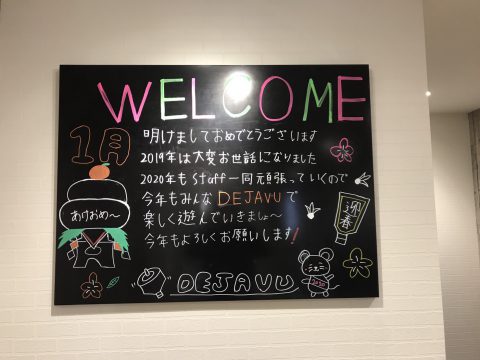 WELCOME
1月
明けましておめでとうございます
2019年は大変お世話になりました
2020年もstaff一同頑張っていくので
今年もみんなDEJAVUで
楽しく遊んでいきましょ〜
今年もよろしくお願いします!
あけおめ〜
迎春
DEJAVU